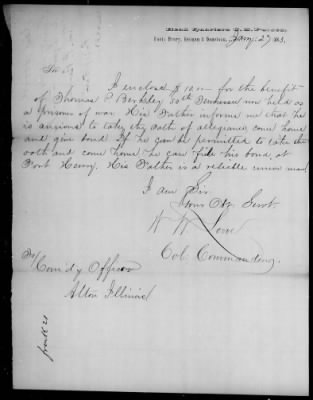 Head Quarters U. S. Forces
Forts Henry, Heiman & Donelson, Jany. 27 1863.
Sir
I enclose $10.00 for the benefit
of Thomas P Berkeley 50th Tennessee now held as
a prisoner of war. His Father informs me that he
is anxious to take the oath of allegiance come home
and give bond. If he can be permitted to take the
oath and come home he can file his bond at
Fort Henry. His Father is a reliable union man
I am Sir
Your Obt. Servt
W W Lowe
Col. Commanding.
To
Com'd'g Officer
Alton Illinois